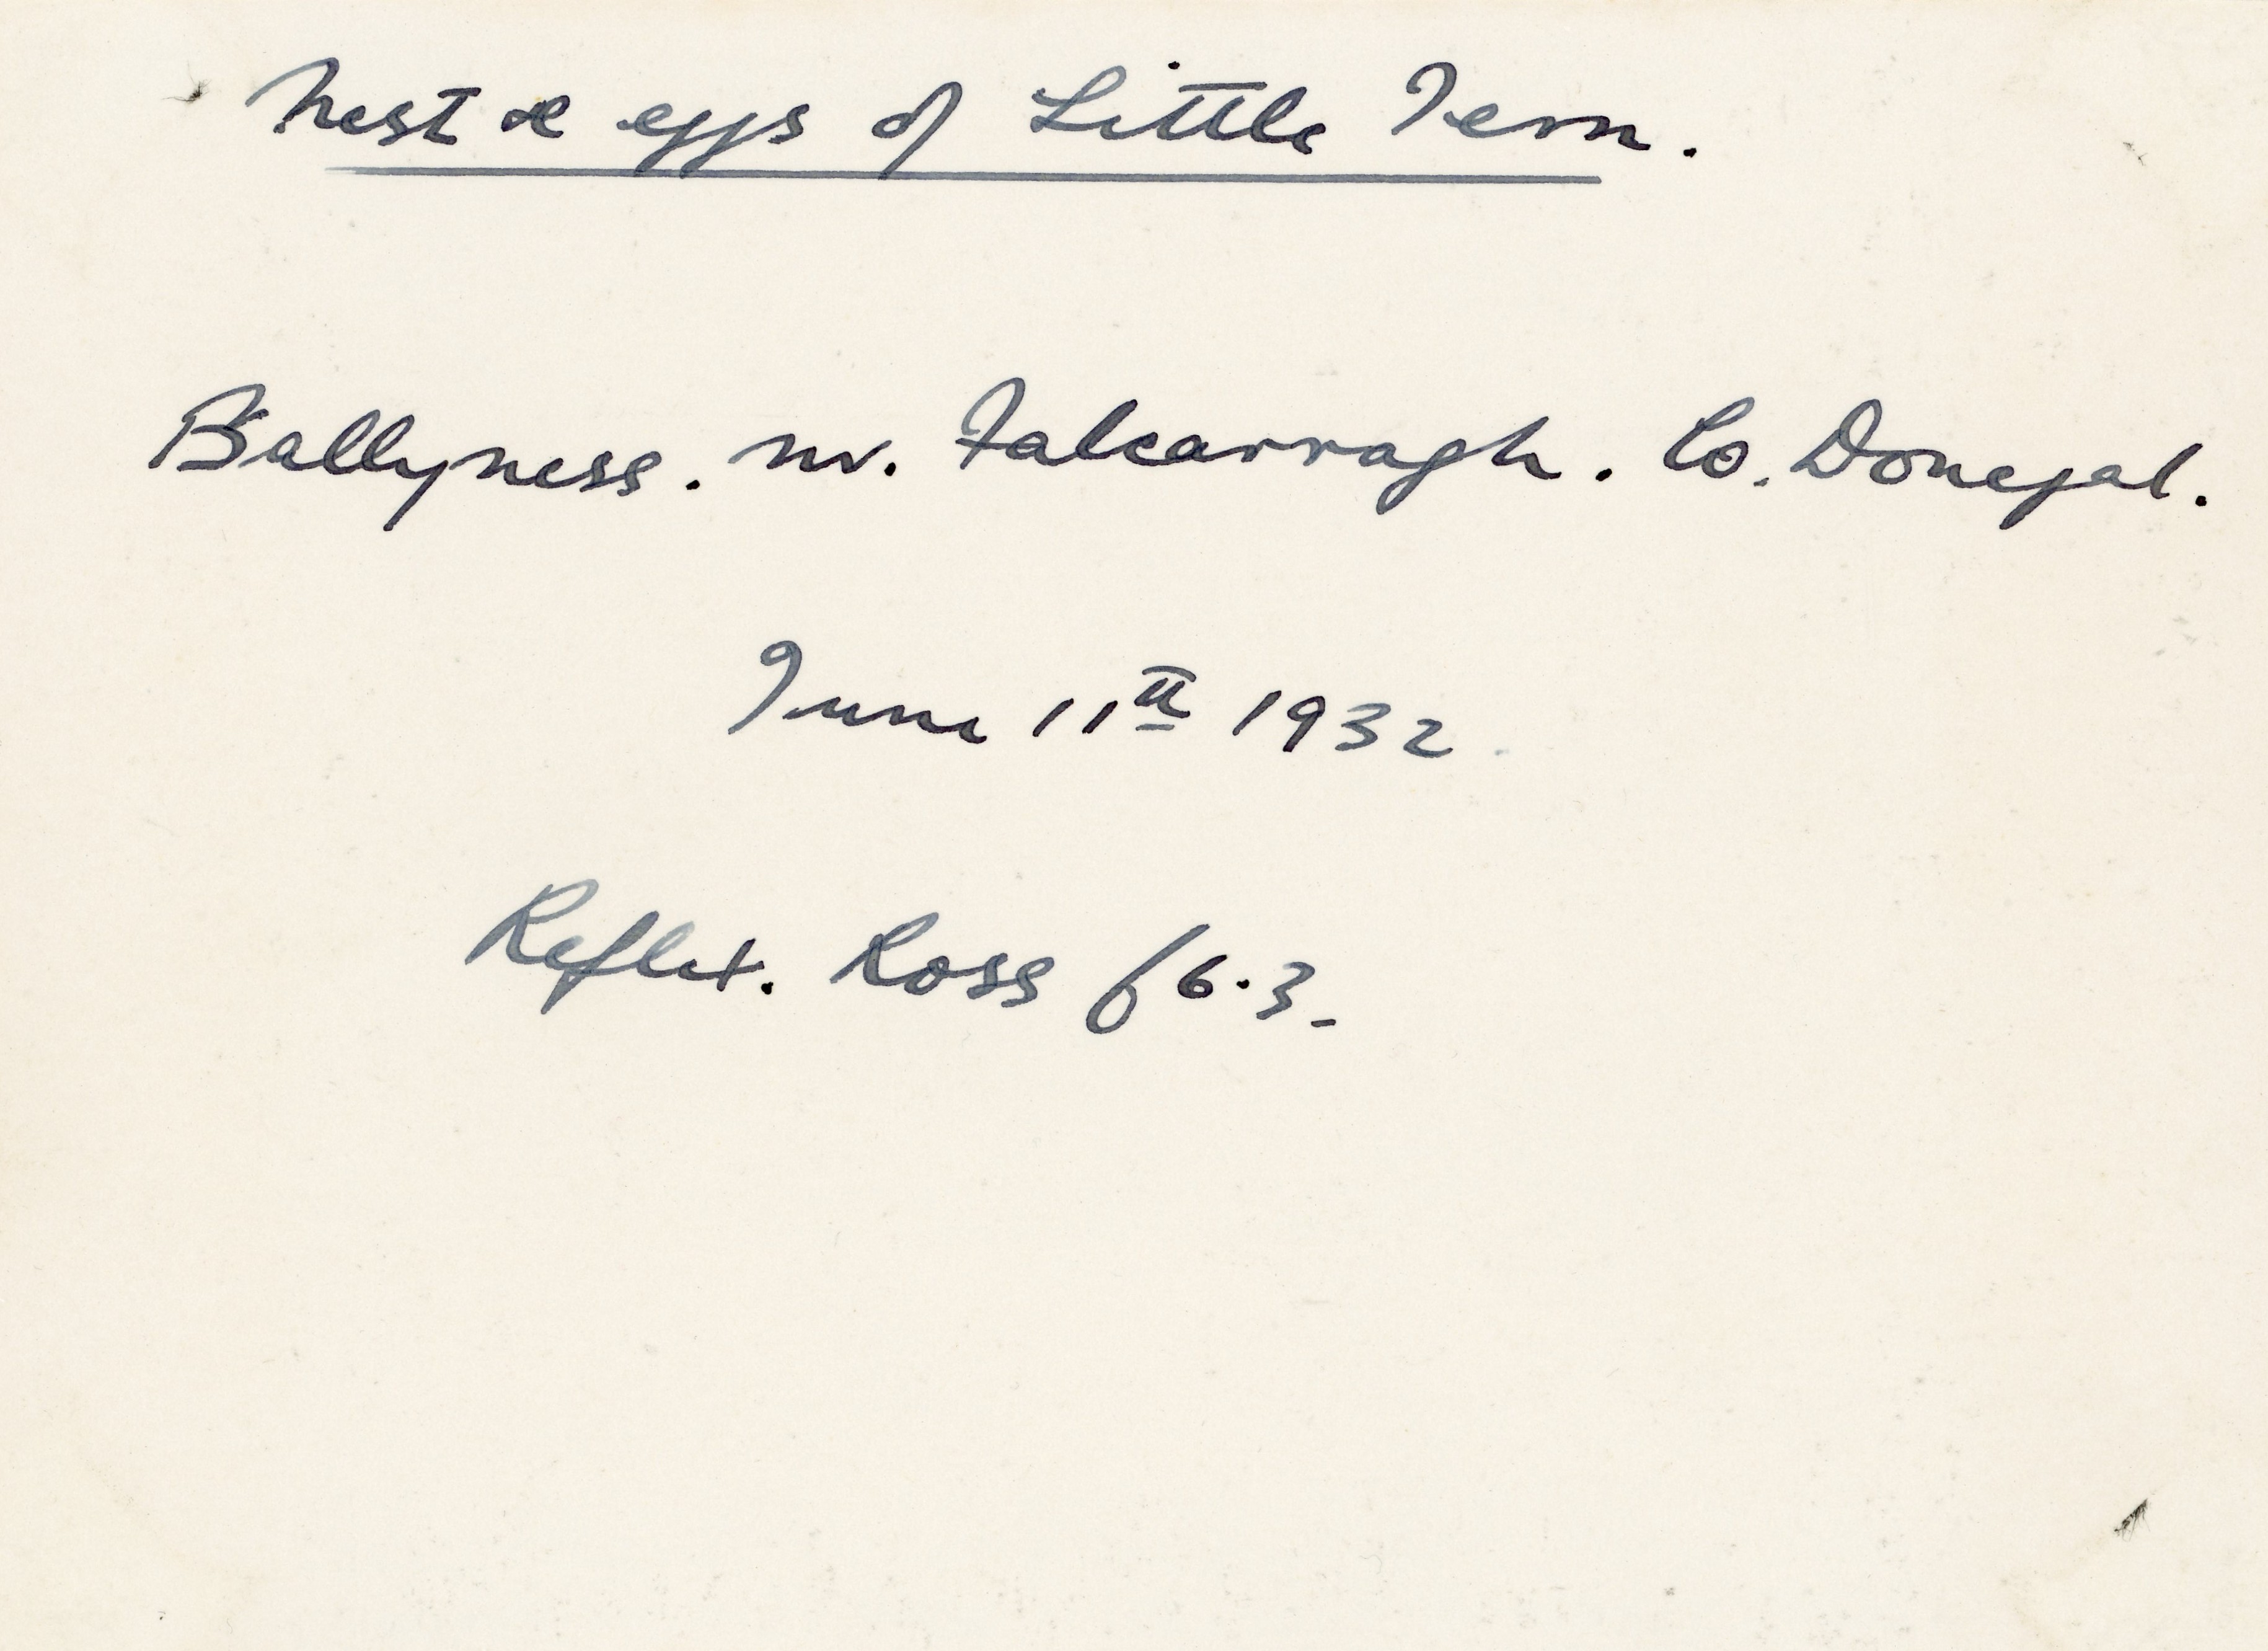 Nest & eggs of Little Tern.
Ballyness. nr. Falcarragh. Co. Donegal.
June 11th 1932.
Reflex. Ross f6.3-